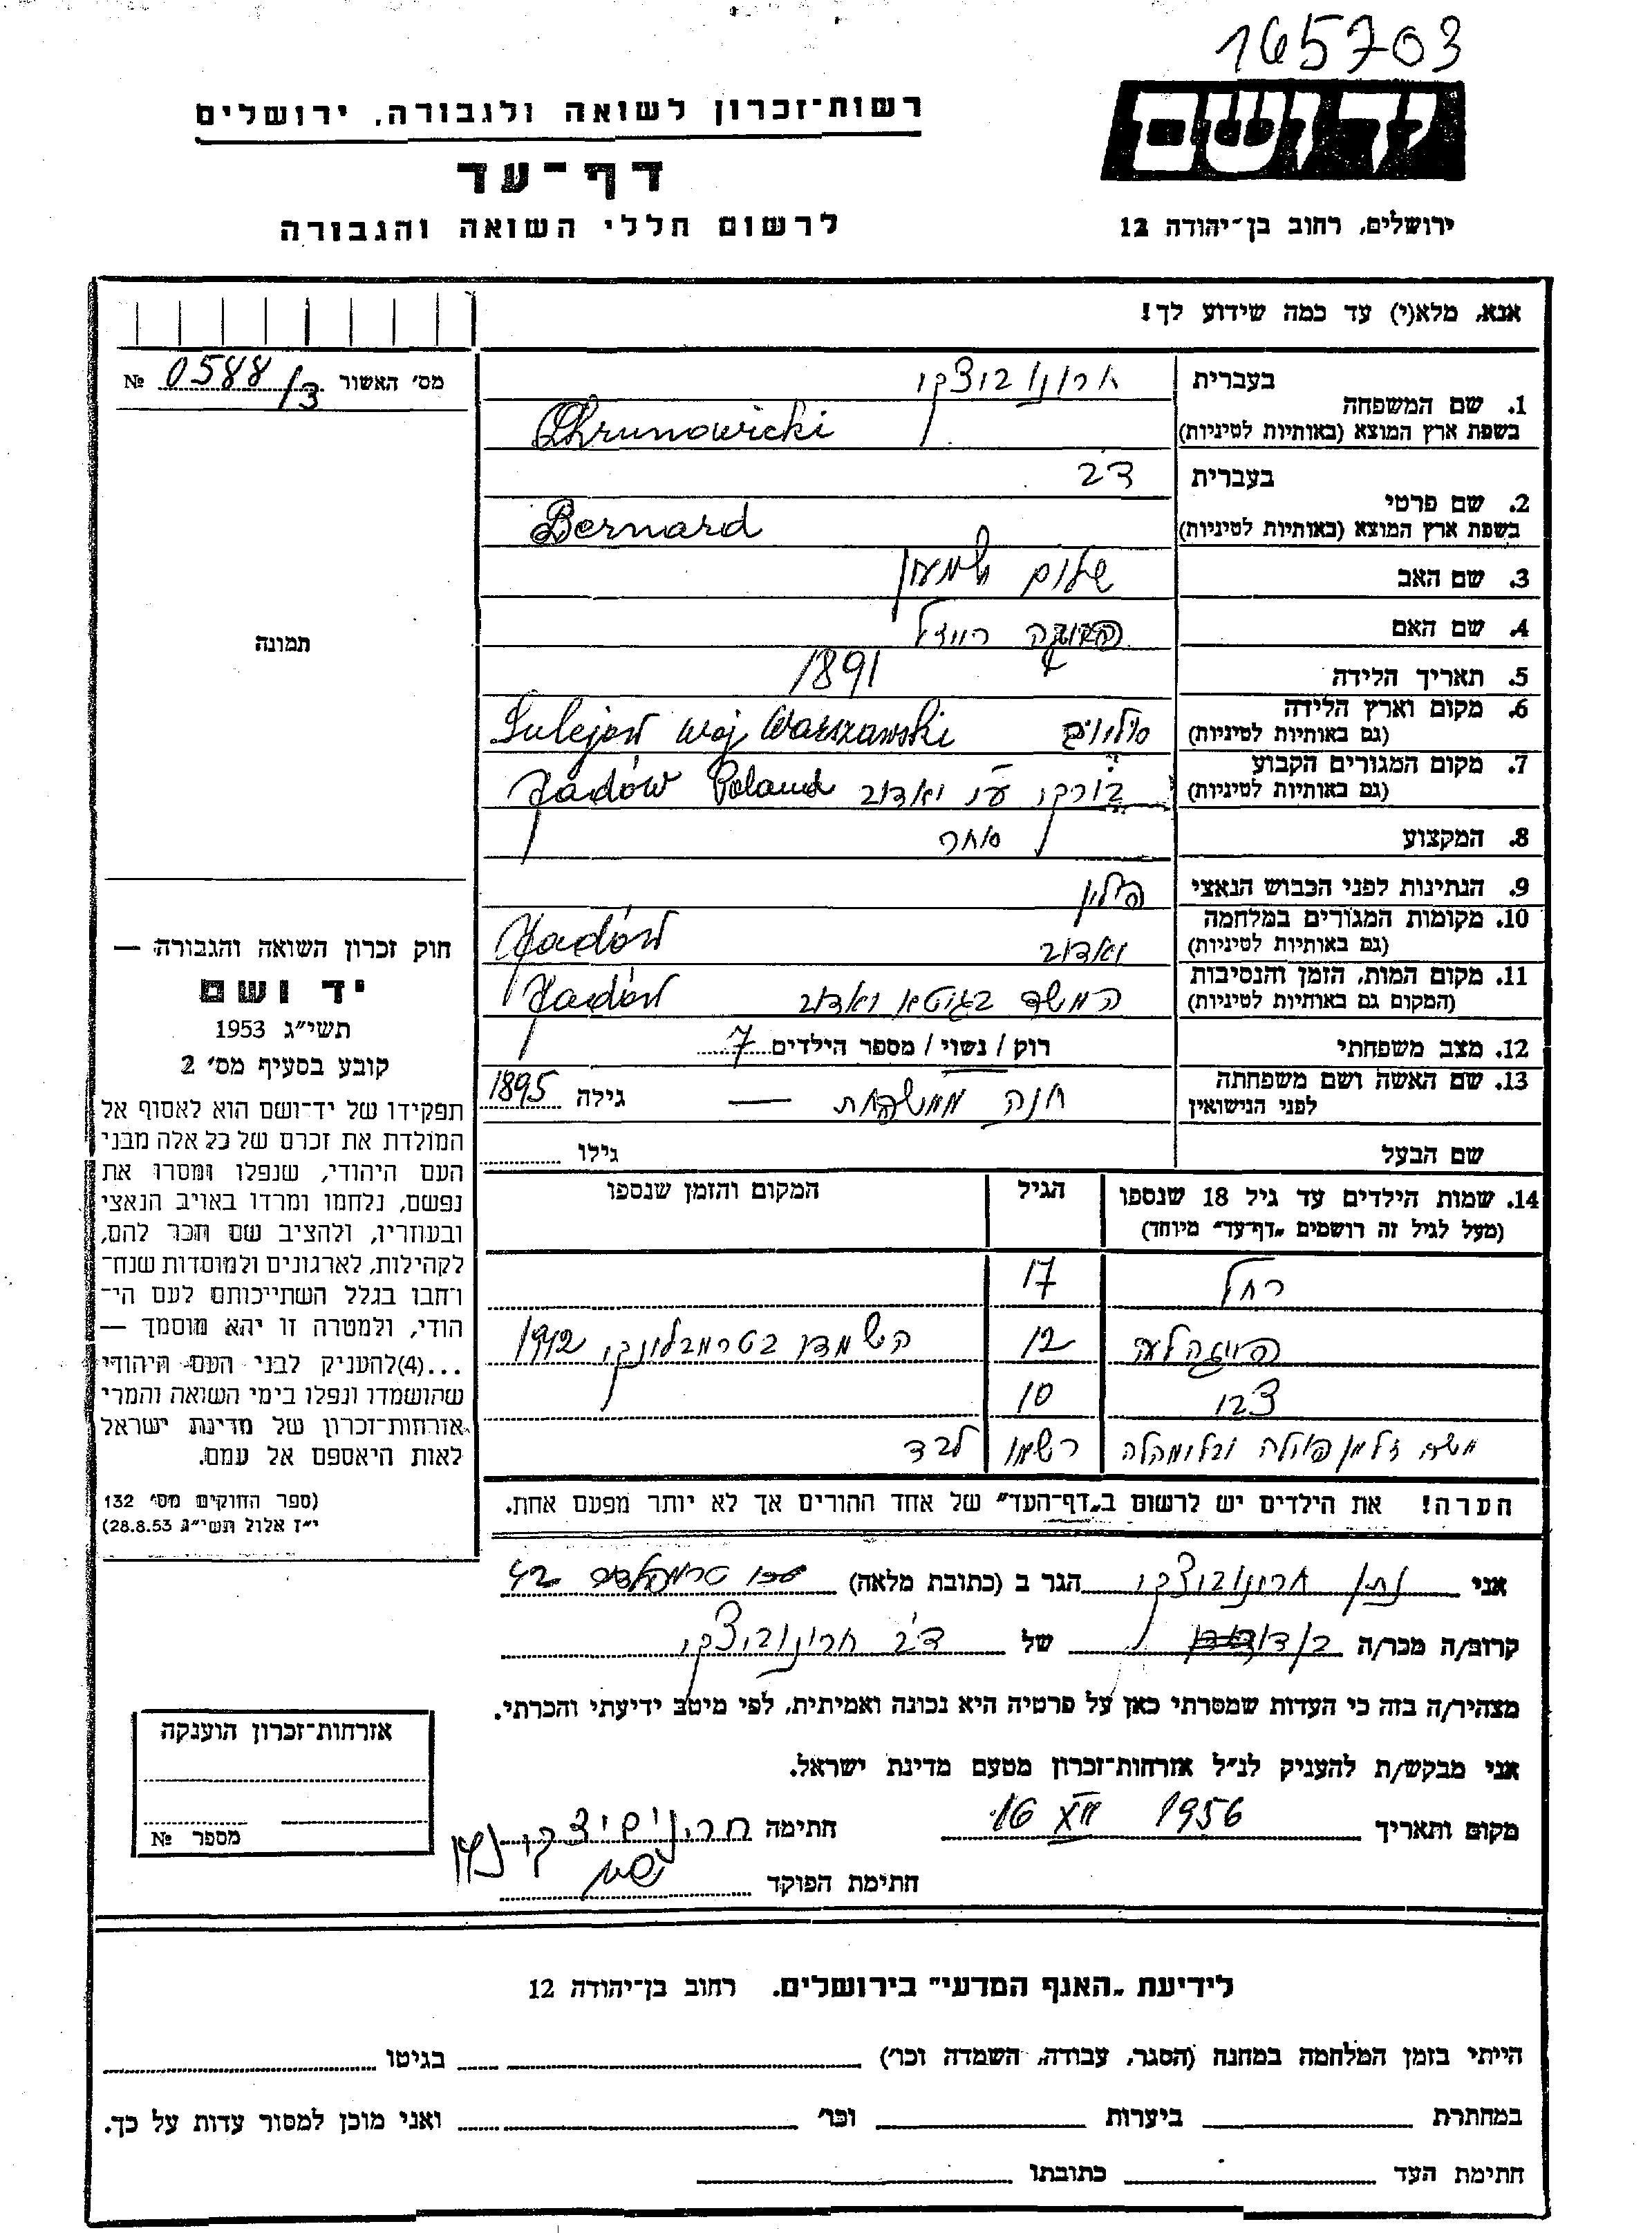 165703
רשות־זכרון לשואה ולגבורה, ירושלים
דף־עד
לרשום חללי השואה והגבורה
ידושם
ירושלים, רחוב בן־יהודה 12
אנא, מלא(י) עד כמה שידוע לך!
מס׳ האשור 0588/3 №
תמונה
חוק זכרון השואה והגבורה —
יד ושם
תשי״ג 1953
קובע בסעיף מס׳ 2
תפקידו של יד־ושם הוא לאסוף אל
המולדת את זכרם של כל אלה מבני
העם היהודי, שנפלו ומסרו את
נפשם, נלחמו ומרדו באויב הנאצי
ובעוזריו, ולהציב שם וזכר להם,
לקהילות, לארגונים ולמוסדות שנח־
רחבו בגלל השתייכותם לעם הי־
הודי, ולמטרה זו יהא מוסמך —
...(4)להעניק לבני העם היהודי
שהושמדו ונפלו בימי השואה והמרי
אזרחות־זכרון של מדינת ישראל
לאות היאספם אל עמם.
(ספר החוקים מס׳ 132
י״ז אלול תשי״ג 28.8.53)
1. שם המשפחה בעברית חרונוביצקי
בשפת ארץ המוצא (באותיות לטיניות) Chrunowicki
2. שם פרטי בעברית דב
בשפת ארץ המוצא (באותיות לטיניות) Bernard
3. שם האב שלום
4. שם האם
5. תאריך הלידה 1891
6. מקום וארץ הלידה
(גם באותיות לטיניות) Sulejów woj Warszawski
7. מקום המגורים הקבוע
(גם באותיות לטיניות) יאדוב Jadów Poland
8. המקצוע סוחר
9. הנתינות לפני הכבוש הנאצי פולין
10. מקומות המגורים במלחמה
(גם באותיות לטיניות) יאדוב Jadów
11. מקום המות, הזמן והנסיבות
(המקום גם באותיות לטיניות) הושמד בגיטא יאדוב Jadów
12. מצב משפחתי רוק / נשוי / מספר הילדים 7
13. שם האשה ושם משפחתה
לפני הנישואין חנה ממשפחת — גילה 1895
שם הבעל גילו
14. שמות הילדים עד גיל 18 שנספו הגיל המקום והזמן שנספו
(מעל לגיל זה רושמים „דף־עד״ מיוחד)
רחל 17
12 השמדו בטרמבלונקי 1942
צבי 10
משה זלמן רשמו לבד
הערה! את הילדים יש לרשום ב„דף־העד״ של אחד ההורים אך לא יותר מפעם אחת.
אני נתן חרונוביצקי הגר ב (כתובת מלאה) 42
קרוב/ה מכר/ה בן דוד של דב חרונוביצקי
מצהיר/ה בזה כי העדות שמסרתי כאן על פרטיה היא נכונה ואמיתית, לפי מיטב ידיעתי והכרתי.
אני מבקש/ת להעניק לנ״ל אזרחות־זכרון מטעם מדינת ישראל.
מקום ותאריך 16 XII 1956 חתימה חרוניביצקי נתן
חתימת הפוקד
אזרחות־זכרון הוענקה
מספר №
לידיעת „האגף המדעי״ בירושלים. רחוב בן־יהודה 12
הייתי בזמן המלחמה במחנה (הסגר, עבודה, השמדה וכו׳) בגיטו
במחתרת ביערות וכו׳ ואני מוכן למסור עדות על כך.
חתימת העד כתובתו